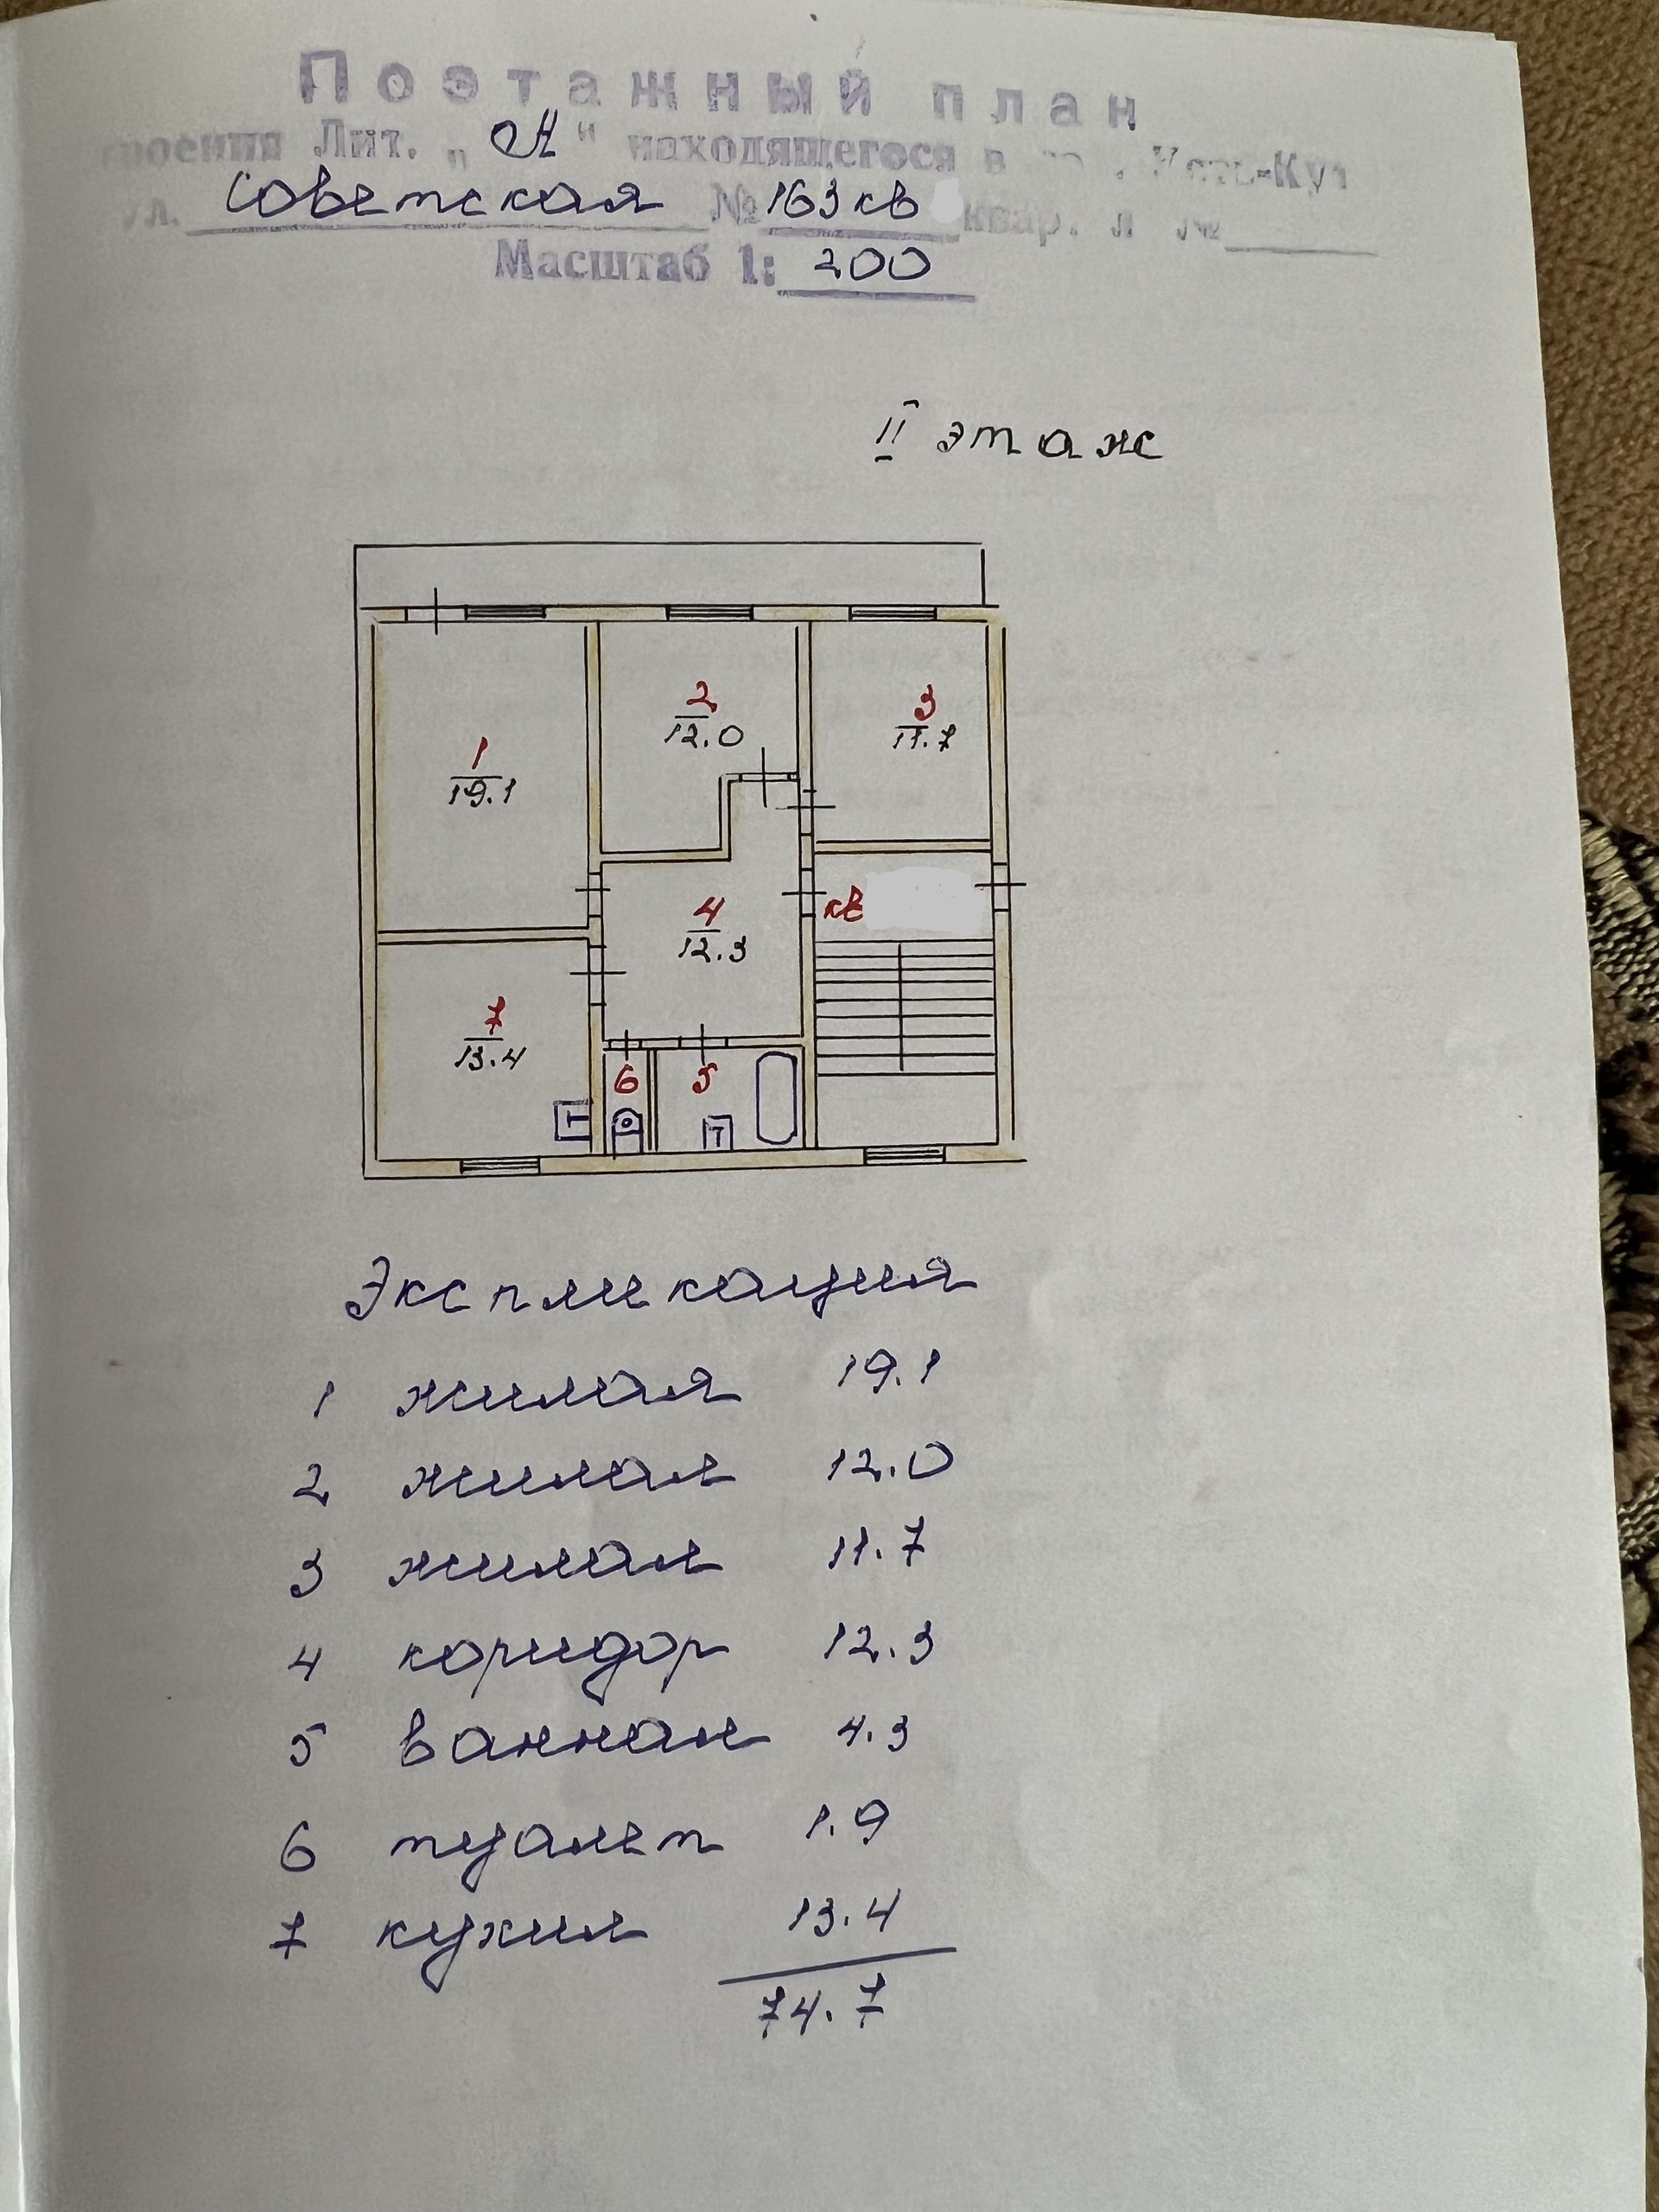 Поэтажный план
роения Лит. „А" находящегося в го . Усть-Кут
ул. Советская №163 кв квар. л №
Масштаб 1: 200
II этаж
2
12.0
3
11.7
1
19.1
4
12.3
кв
7
13.4
6
5
Экспликация
1 жилая 19.1
2 жилая 12.0
3 жилая 11.7
4 коридор 12.3
5 ванная 4.3
6 туалет 1.9
7 кухня 13.4
74.7